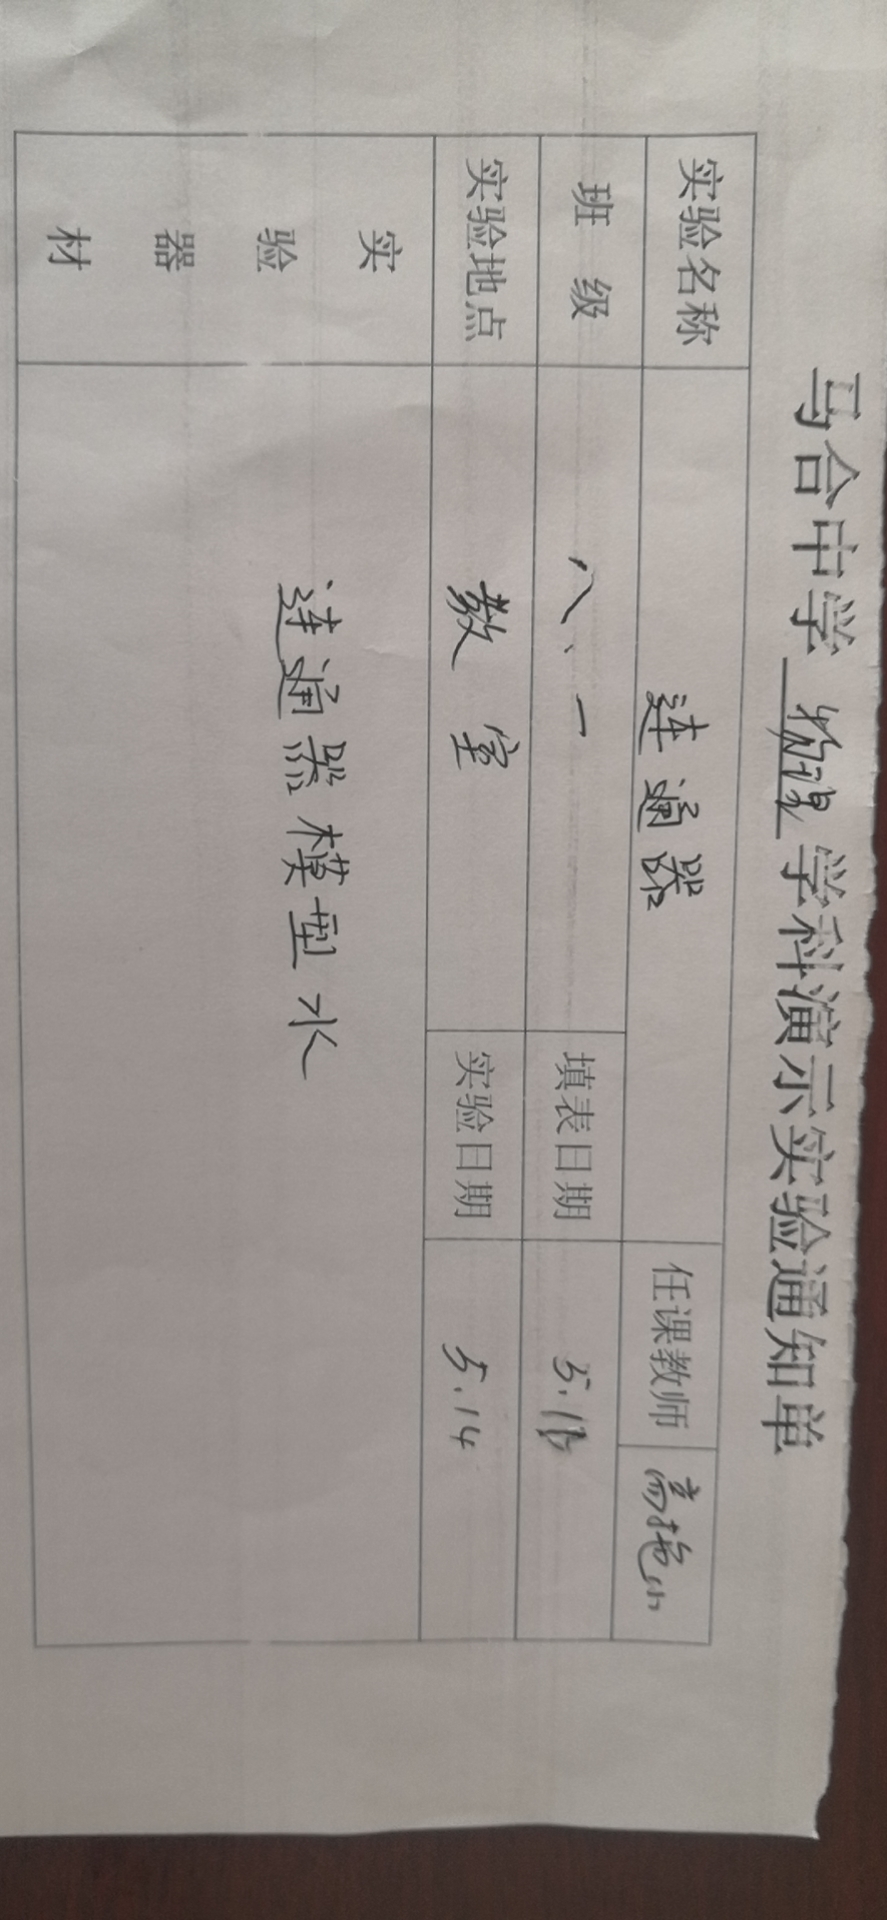 马合中学 物理 学科演示实验通知单
实验名称 连通器 任课教师
班级 八、一 填表日期
实验地点 教室 实验日期 5.14
实验器材 连通器模型 水